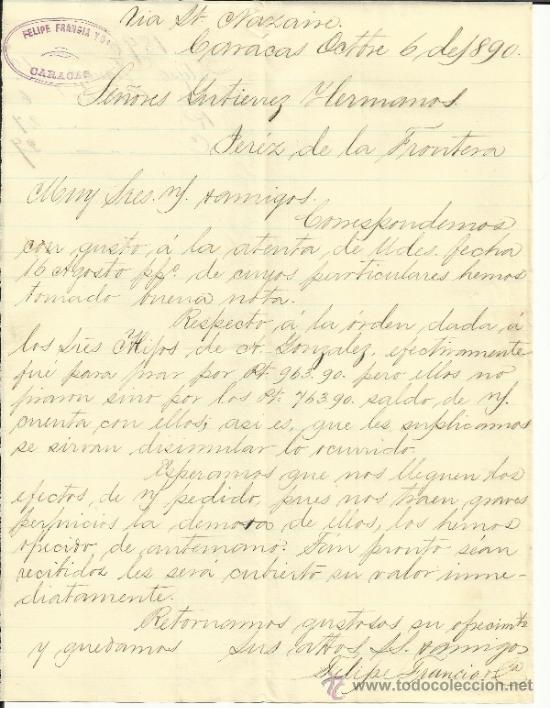 Via St. Nazaire.
FELIPE FRANCIA Y Ca
CARACAS
Carácas Octbre 6 de 1890.
Señores Gutierrez Hermanos.
Jeréz de la Frontera
Muy Sres. n/. y amigos.
Correspondemos
con gusto á la atenta de Udes. fecha
16 Agosto ppo. de cuyos particulares hemos
tomado buena nota.
Respecto á la órden dada á
los Sres Hijos de A. Gonzalez, efectivamente
fué para girar por Pt. 963.90. pero ellos no
giraron sino por los Pt. 763.90 saldo de n/.
cuenta con ellos; asi es, que les suplicamos
se sirvan disimular lo ocurrido.
Esperamos que nos lleguen los
efectos de n/ pedido, pues nos traen graves
perjuicios la demora de ellos, los hemos
ofrecido de antemano. Tan pronto séan
recibidos les será cubierto su valor inme-
diatamente.
Retornamos gustosos su ofrecimto
y quedamos sus attos. S.S. y amigos
Felipe Francia y Ca
todocoleccion
www.todocoleccion.net